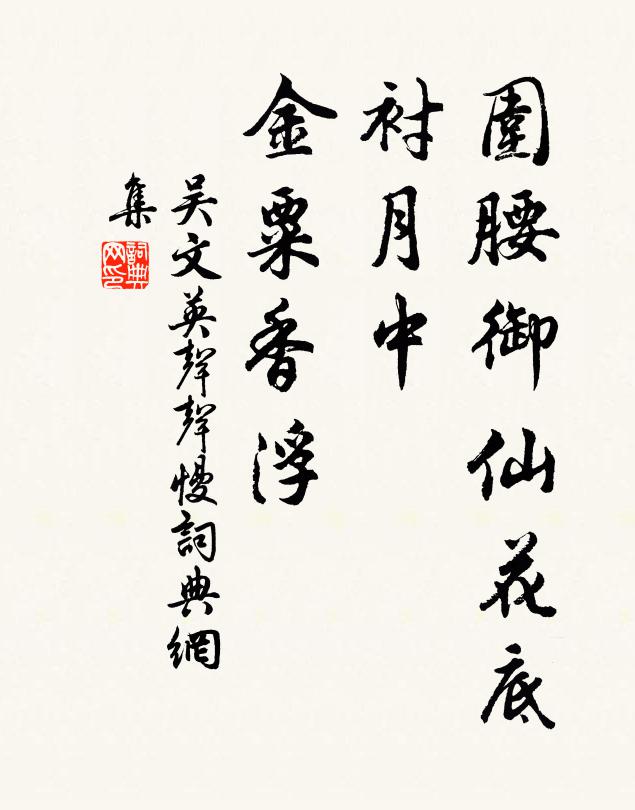 圍腰御仙花底
襯月中
金粟香浮
吴文英聲聲慢詞典網
集
詞典網印